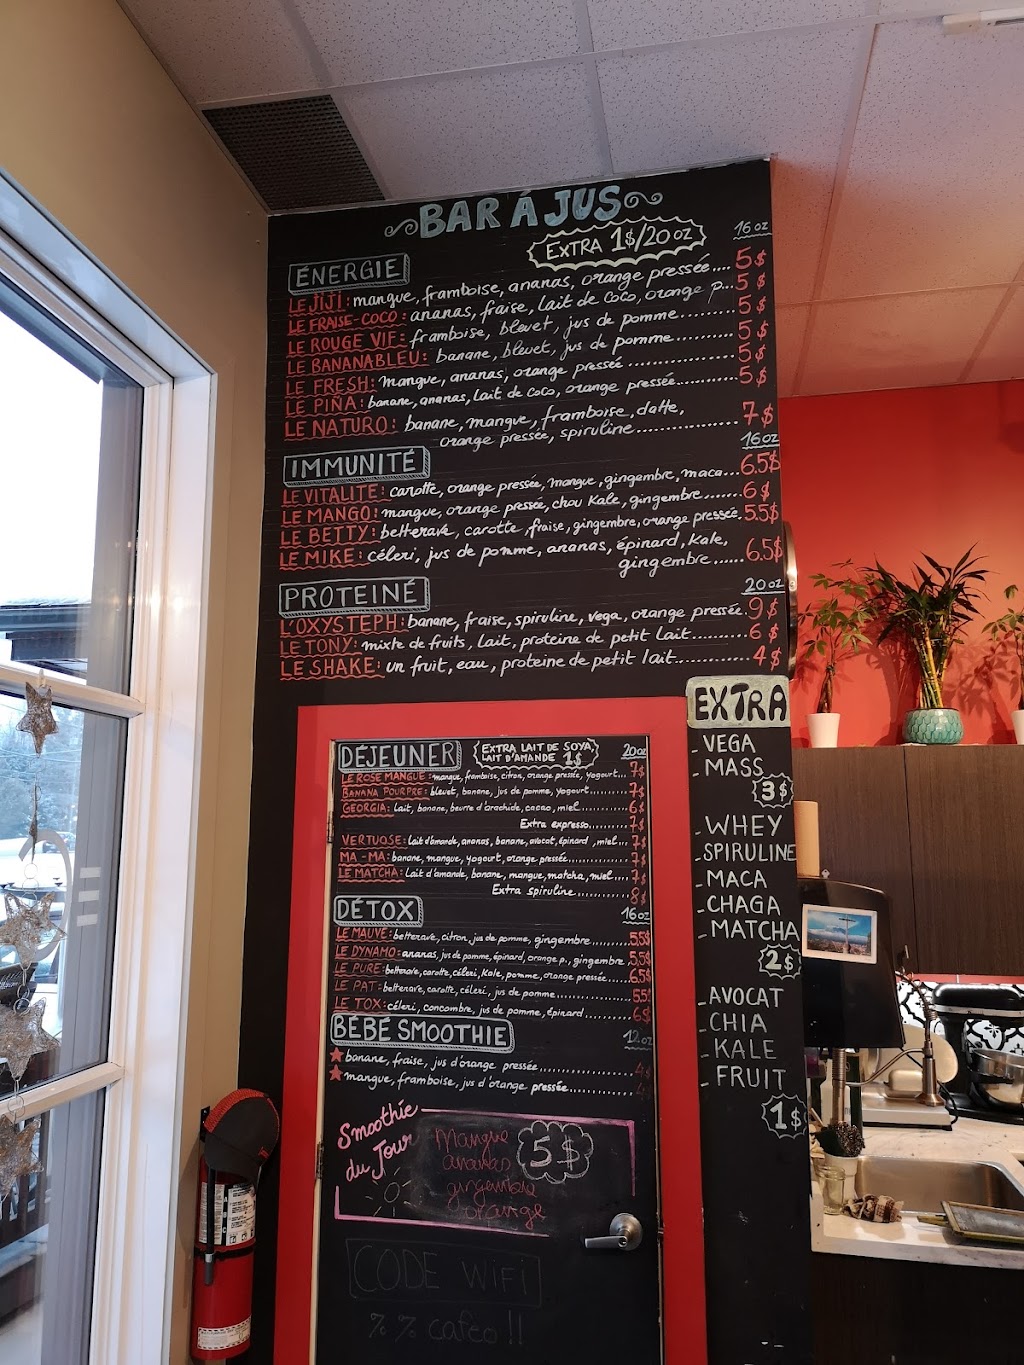 BAR À JUS
EXTRA 1$/20 oz
16 oz
ÉNERGIE
LE JIJI: mangue, framboise, ananas, orange pressée.... 5$
LE FRAISE-COCO: ananas, fraise, lait de coco, orange p... 5$
LE ROUGE VIF: framboise, bleuet, jus de pomme......... 5$
LE BANANABLEU: banane, bleuet, jus de pomme.......... 5$
LE FRESH: mangue, ananas, orange pressée ............... 5$
LE PIÑA: banane, ananas, lait de coco, orange pressée........... 5$
LE NATURO: banane, mangue, framboise, datte,
orange pressée, spiruline............... 7$
IMMUNITÉ
16 oz
LE VITALITÉ: carotte, orange pressée, mangue, gingembre, maca... 6.5$
LE MANGO: mangue, orange pressée, chou Kale, gingembre....... 6$
LE BETTY: betterave, carotte, fraise, gingembre, orange pressée. 5.5$
LE MIKE: céleri, jus de pomme, ananas, épinard, Kale,
gingembre...... 6.5$
PROTEINÉ
20 oz
L'OXYSTEPH: banane, fraise, spiruline, vega, orange pressée. 9$
LE TONY: mixte de fruits, lait, proteine de petit lait.......... 6$
LE SHAKE: un fruit, eau, proteine de petit lait............. 4$
EXTRA
- VEGA
- MASS
3$
- WHEY
- SPIRULINE
- MACA
- CHAGA
- MATCHA
2$
- AVOCAT
- CHIA
- KALE
- FRUIT
1$
DÉJEUNER
EXTRA LAIT DE SOYA,
LAIT D'AMANDE 1$
20 oz
LE ROSE MANGUE: mangue, framboise, citron, orange pressée, yogourt... 7$
BANANA POURPRE: bleuet, banane, jus de pomme, yogourt.......... 7$
GEORGIA: lait, banane, beurre d'arachide, cacao, miel............ 6$
Extra expresso.......... 7$
VERTUOSE: lait d'amande, ananas, banane, avocat, épinard, miel... 7$
MA-MA: banane, mangue, yogourt, orange pressée.............. 7$
LE MATCHA: lait d'amande, banane, mangue, matcha, miel.... 7$
Extra spiruline............ 8$
DÉTOX
16 oz
LE MAUVE: betterave, citron, jus de pomme, gingembre.......... 5.5$
LE DYNAMO: ananas, jus de pomme, épinard, orange p., gingembre. 5.5$
LE PURE: betterave, carotte, céleri, Kale, pomme, orange pressée..... 6.5$
LE PAT: betterave, carotte, céleri, jus de pomme............... 5.5$
LE TOX: céleri, concombre, jus de pomme, épinard........... 6$
BÉBÉ SMOOTHIE
12 oz
★ banane, fraise, jus d'orange pressée................ 4$
★ mangue, framboise, jus d'orange pressée............. 4$
Smoothie
du Jour
Mangue
ananas
gingembre
orange
5$
CODE WiFi
% % caféo !!